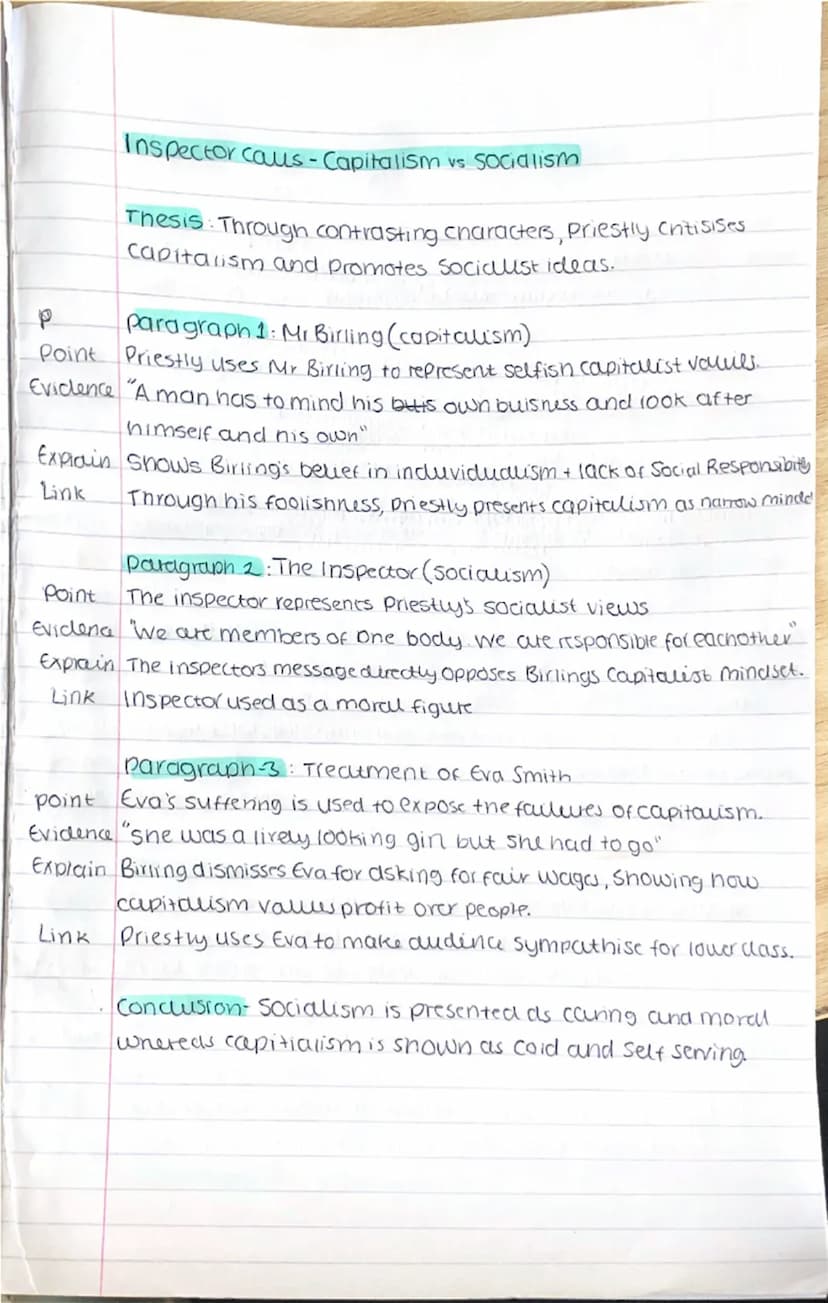 Inspector calls - Capitalism vs Socialism
Thesis: Through contrasting characters, Priestly critisises
capitalism and promotes socialist ideas.
P Paragraph 1: Mr Birling (capitalism)
Point Priestly uses Mr Birling to represent selfish capitalist values.
Evidence "A man has to mind his own buisness and look after
himself and his own"
Explain Shows Birling's belief in individualism + lack of Social Responsibility
Link Through his foolishness, Priestly presents capitalism as narrow minded
Paragraph 2: The Inspector (socialism)
Point The inspector represents Priestly's socialist views
Evidence "We are members of one body. We are responsible for eachother"
Explain The inspectors message directly opposes Birlings Capitalist mindset.
Link Inspector used as a moral figure
Paragraph-3: Treatment of Eva Smith
point Eva's suffering is used to expose the failures of capitalism.
Evidence "she was a lively looking girl but she had to go"
Explain Birling dismisses Eva for asking for fair wages, showing how
capitalism values profit over people.
Link Priestly uses Eva to make audince sympathise for lower class.
Conclusion- Socialism is presented as caring and moral
whereas capitialism is shown as cold and self serving